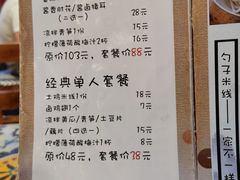 酱香时花/酱卤猪耳
(二选一) 28元
凉拌莴笋 15元
柠檬薄荷酸梅汁2杯 16元
原价103元，套餐价88元
经典单人套餐
土鸡米线1份 18元
卤鸡翅1个 7元
凉拌黄瓜/青笋/土豆片
/藕片(四选一) 15元
柠檬薄荷酸梅汁1杯 8元
原价48元，套餐价38元
勺子米线——一家不一样